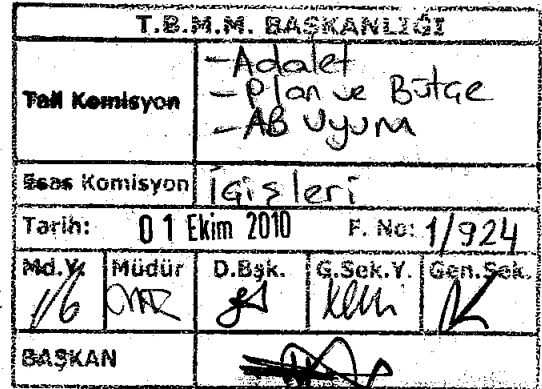 T.B.M.M. BAŞKANLIĞI
Tali Komisyon
-Adalet
-Plan ve Bütçe
-AB Uyum
Esas Komisyon İçişleri
Tarih: 01 Ekim 2010 F. No: 1/924
Md.Y. Müdür D.Bşk. G.Sek.Y. Gen.Sek.
BAŞKAN